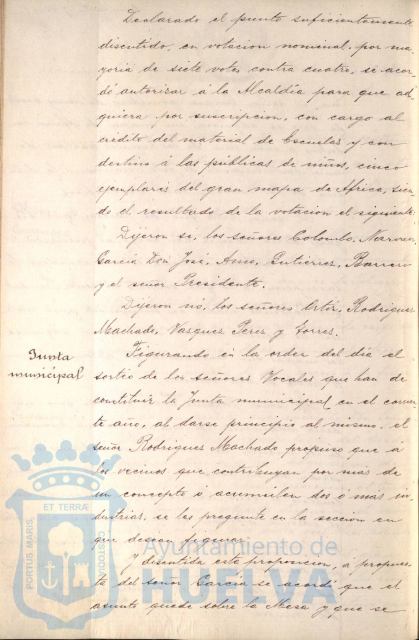 Declarado el punto suficientemente
discutido, en votacion nominal, por ma-
yoria de siete votos contra cuatro, se acor-
dó autorizar á la Alcaldia para que ad-
quiera por suscripcion, con cargo al
crédito del material de Escuelas y con
destino á las públicas de niños, cinco
ejemplares del gran mapa de Africa, sien-
do el resultado de la votacion el siguiente:
Dijeron si, los señores Colombo, 
Garcia Don José, Gutiérrez, Barrero
y el señor Presidente.
Dijeron nó, los señores Rodriguez
Machado, Vazquez Perez y Torres.
Junta
municipal
Figurando en la orden del dia el
sorteo de los señores Vocales que han de
constituir la Junta municipal en el corrien-
te año, al darse principio al mismo, el
señor Rodriguez Machado propuso que á
los vecinos que contribuyan por más de
un concepto ó acumulen dos ó más in-
dustrias, se les pregunte en la seccion en
que desean figurar.
Y discutida esta proposicion, á propues-
ta del señor Garcia se acordó que el
asunto quede sobre la Mesa y que se
PORTUS MARIS
ET TERRÆ
CUSTODIA
Ayuntamiento de
HUELVA